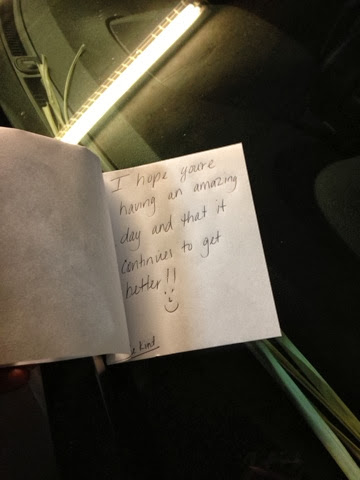 I hope you're
having an amazing
day and that it
continues to get
better!!
kind